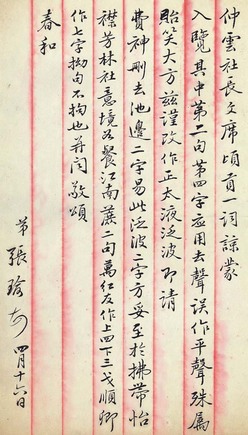 仲雲社長文席頃一詞諒蒙
入覽其中第句第四字應用去聲誤作平聲殊屬
貽笑大方茲謹改作正太液泛波即請
費神刪去池邊二字易此泛波二字方妥至於拂帶怡
襟芳林社意境各餐江南蔗二句萬紅友作上四下三戈順卿
作七字拗句不拘也并聞敬頌
春和
弟張瑜
四月十六日